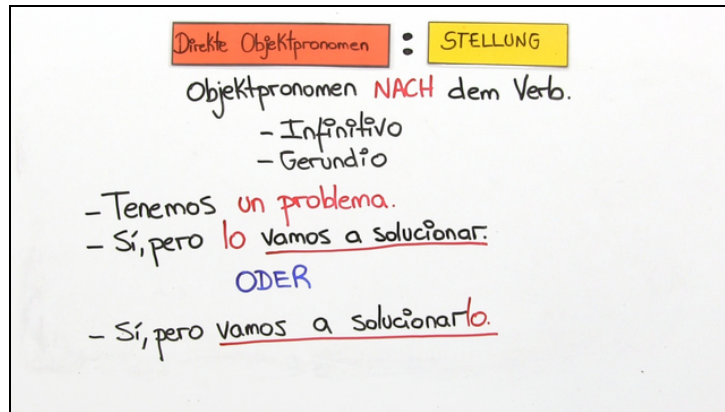 Direkte Objektpronomen : STELLUNG
Objektpronomen NACH dem Verb.
- Infinitivo
- Gerundio
- Tenemos un problema.
- Sí, pero lo vamos a solucionar.
ODER
- Sí, pero vamos a solucionarlo.